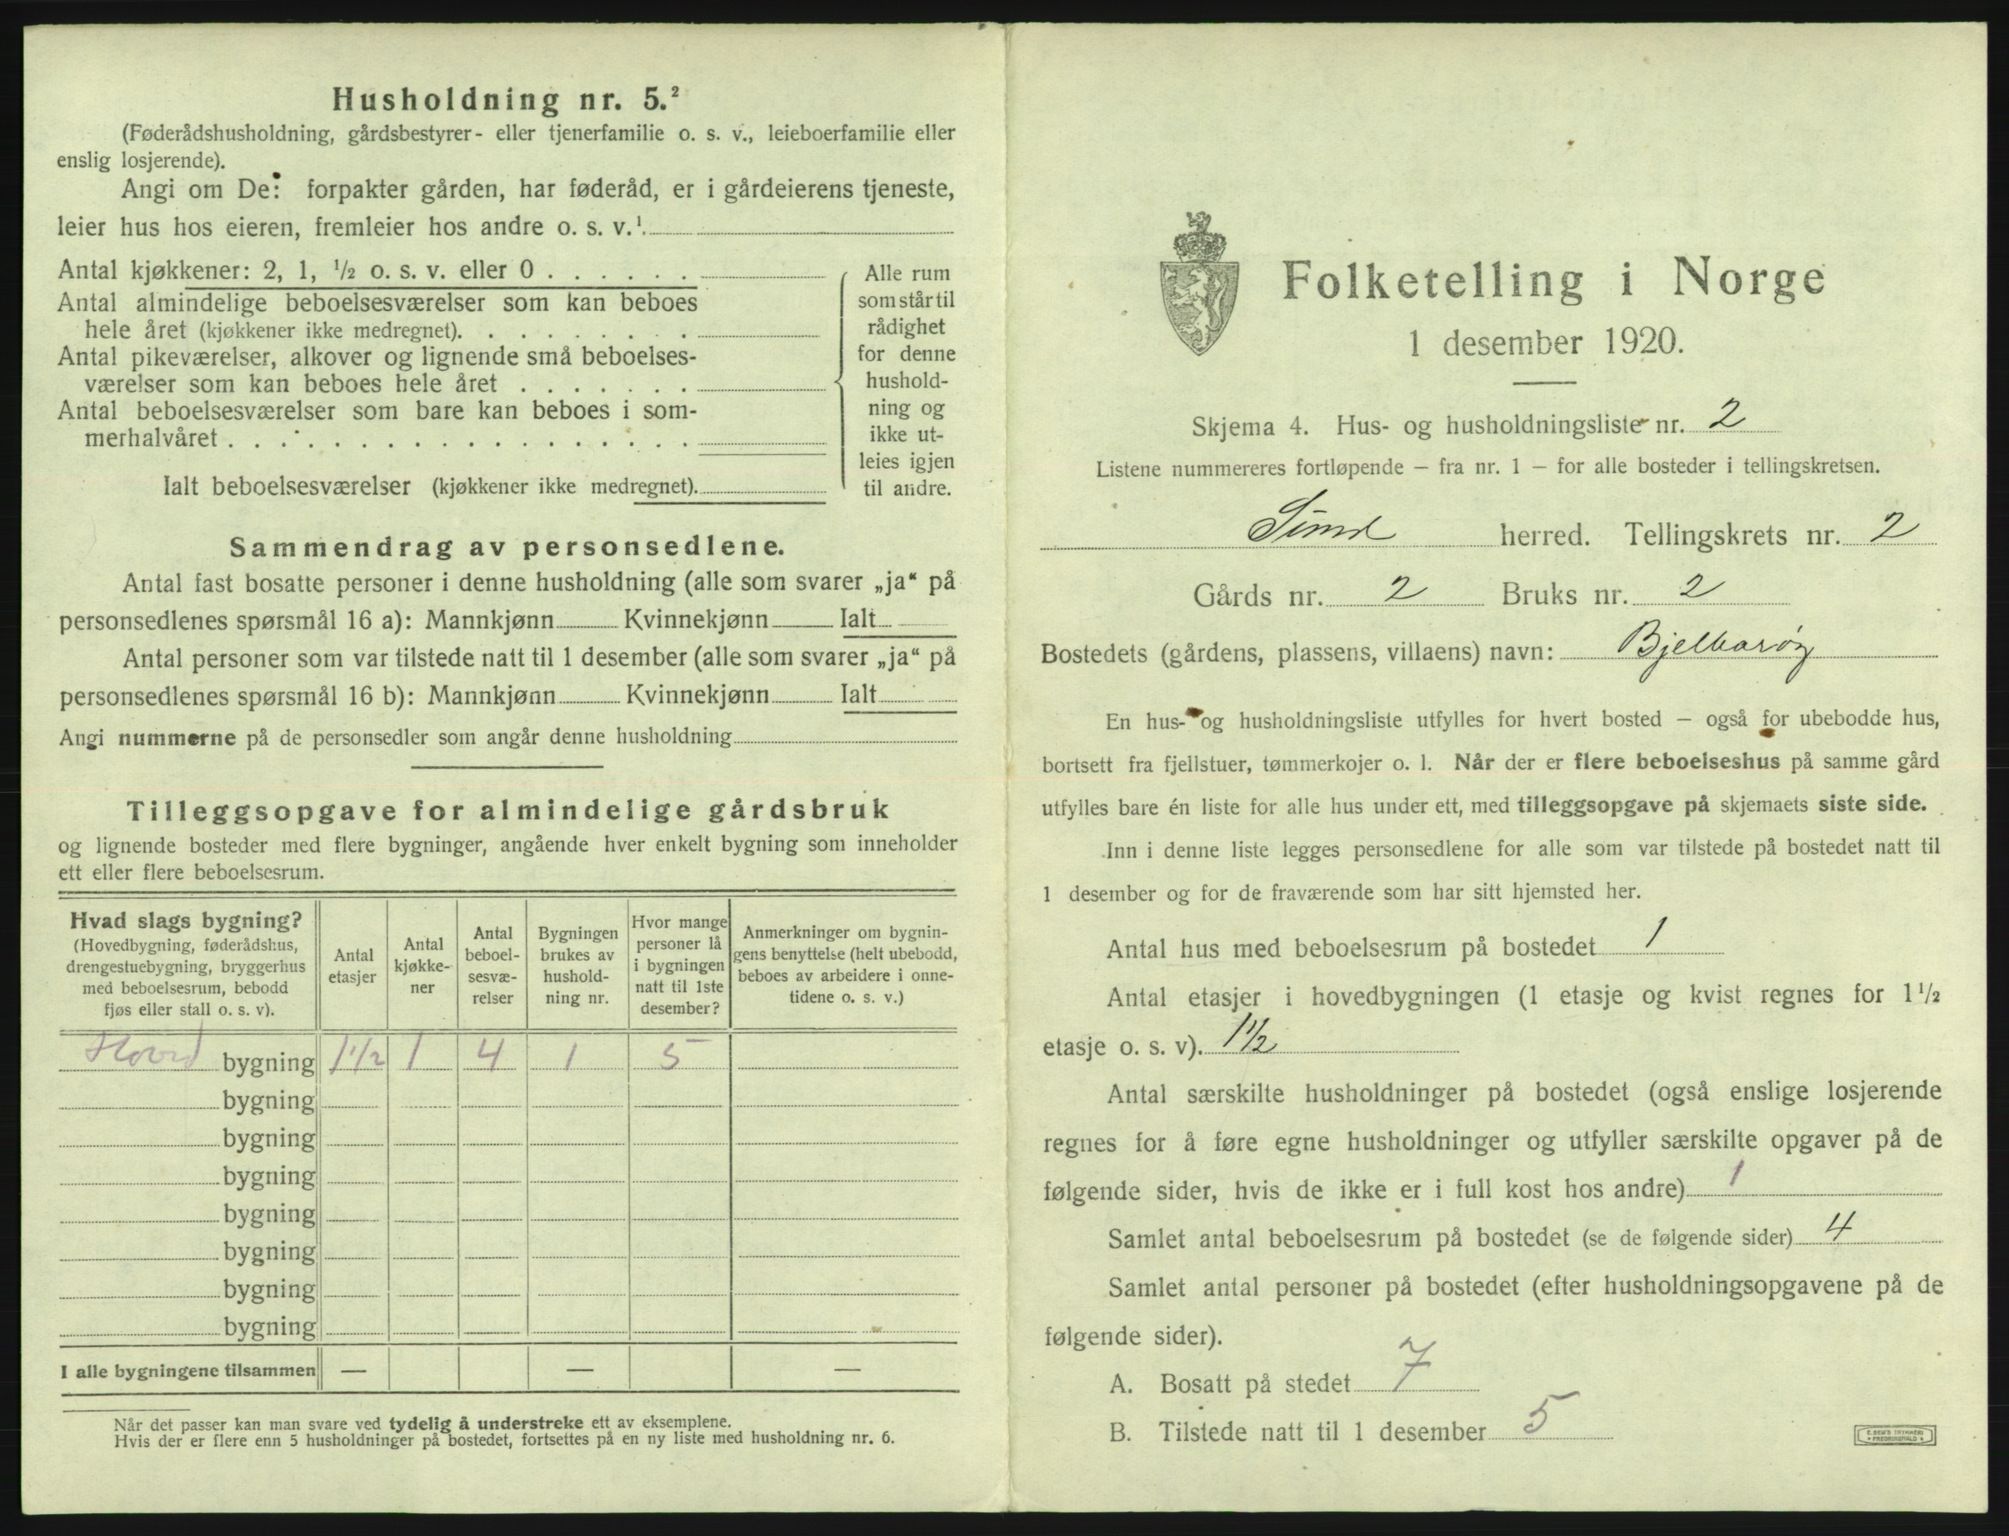 Husholdning nr. 5.²
(Føderådshusholdning, gårdsbestyrer- eller tjenerfamilie o. s. v., leieboerfamilie eller
enslig losjerende).
Angi om De: forpakter gården, har føderåd, er i gårdeierens tjeneste,
leier hus hos eieren, fremleier hos andre o. s. v.¹
Antal kjøkkener: 2, 1, ½ o. s. v. eller 0 . . . . . .
Antal almindelige beboelsesværelser som kan beboes
hele året (kjøkkener ikke medregnet). . . . . . . .
Antal pikeværelser, alkover og lignende små beboelses-
værelser som kan beboes hele året . . . . . . .
Antal beboelsesværelser som bare kan beboes i som-
merhalvåret . . . . . . . . . . . . . . . . . .
Ialt beboelsesværelser (kjøkkener ikke medregnet).
Alle rum
som står til
rådighet
for denne
hushold-
ning og
ikke ut-
leies igjen
til andre.
Sammendrag av personsedlene.
Antal fast bosatte personer i denne husholdning (alle som svarer „ja“ på
personsedlenes spørsmål 16 a): Mannkjønn Kvinnekjønn Ialt
Antal personer som var tilstede natt til 1 desember (alle som svarer „ja“ på
personsedlenes spørsmål 16 b): Mannkjønn Kvinnekjønn Ialt
Angi nummerne på de personsedler som angår denne husholdning
Tilleggsopgave for almindelige gårdsbruk
og lignende bosteder med flere bygninger, angående hver enkelt bygning som inneholder
ett eller flere beboelsesrum.
Hvad slags bygning?
(Hovedbygning, føderådshus,
drengestuebygning, bryggerhus
med beboelsesrum, bebodd
fjøs eller stall o. s. v).
Antal
etasjer
Antal
kjøkke-
ner
Antal
beboel-
sesvæ-
relser
Bygningen
brukes av
hushold-
ning nr.
Hvor mange
personer lå
i bygningen
natt til 1ste
desember?
Anmerkninger om bygnin-
gens benyttelse (helt ubebodd,
beboes av arbeidere i onne-
tidene o. s. v.)
Hoved bygning 1½ 1 4 1 5
bygning
bygning
bygning
bygning
bygning
bygning
bygning
I alle bygningene tilsammen — — —
Når det passer kan man svare ved tydelig å understreke ett av eksemplene.
Hvis der er flere enn 5 husholdninger på bostedet, fortsettes på en ny liste med husholdning nr. 6.
Folketelling i Norge
1 desember 1920.
Skjema 4. Hus- og husholdningsliste nr. 2
Listene nummereres fortløpende – fra nr. 1 – for alle bosteder i tellingskretsen.
Sund herred. Tellingskrets nr. 2
Gårds nr. 2 Bruks nr. 2
Bostedets (gårdens, plassens, villaens) navn: Bjelkarøy
En hus- og husholdningsliste utfylles for hvert bosted – også for ubebodde hus,
bortsett fra fjellstuer, tømmerkojer o. l. Når der er flere beboelseshus på samme gård
utfylles bare én liste for alle hus under ett, med tilleggsopgave på skjemaets siste side.
Inn i denne liste legges personsedlene for alle som var tilstede på bostedet natt til
1 desember og for de fraværende som har sitt hjemsted her.
Antal hus med beboelsesrum på bostedet 1
Antal etasjer i hovedbygningen (1 etasje og kvist regnes for 1½
etasje o. s. v). 1½
Antal særskilte husholdninger på bostedet (også enslige losjerende
regnes for å føre egne husholdninger og utfyller særskilte opgaver på de
følgende sider, hvis de ikke er i full kost hos andre) 1
Samlet antal beboelsesrum på bostedet (se de følgende sider) 4
Samlet antal personer på bostedet (efter husholdningsopgavene på de
følgende sider).
A. Bosatt på stedet 7
B. Tilstede natt til 1 desember 5